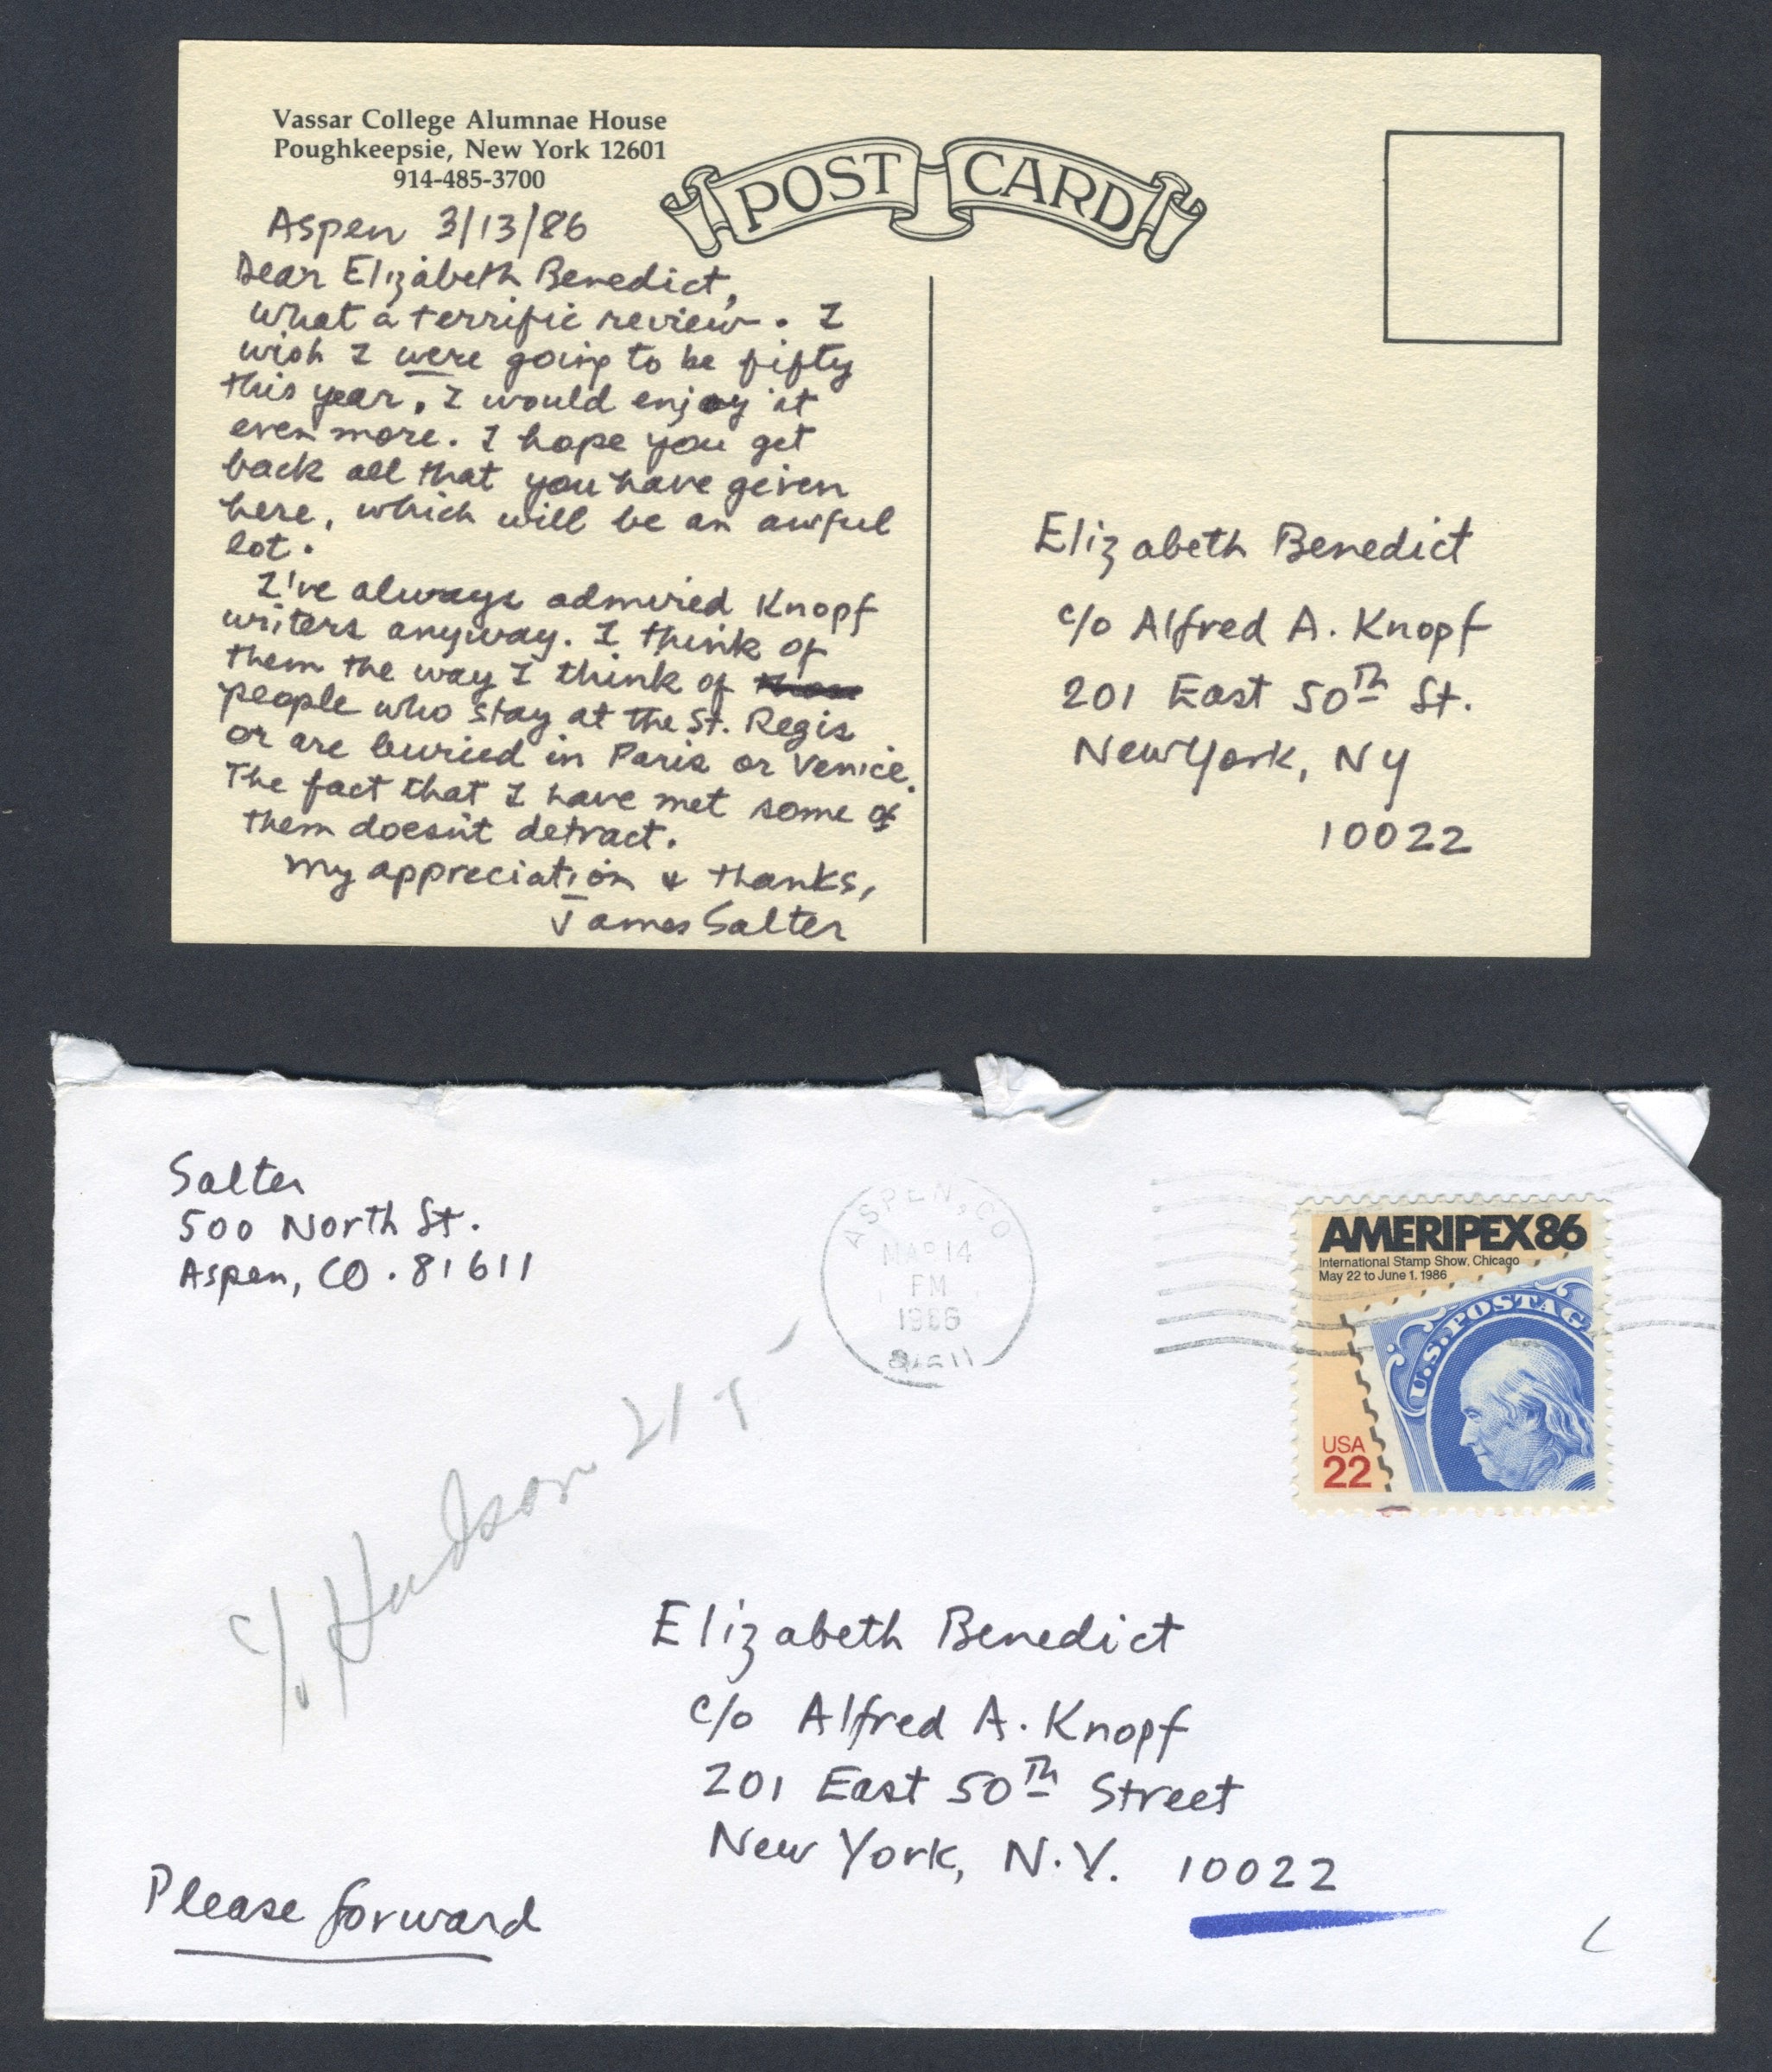 Vassar College Alumnae House
Poughkeepsie, New York 12601
914-485-3700
POST CARD
Aspen 3/13/86
Dear Elizabeth Benedict,
What a terrific review. I
wish I were going to be fifty
this year, I would enjoy it
even more. I hope you get
back all that you have given
here, which will be an awful
lot.
I've always admired Knopf
writers anyway. I think of
them the way I think of
people who stay at the St. Regis
or are buried in Paris or Venice.
The fact that I have met some of
them doesn't detract.
My appreciation & thanks,
James Salter
Elizabeth Benedict
c/o Alfred A. Knopf
201 East 50th St.
New York, NY
10022
Salter
500 North St.
Aspen, CO. 81611
ASPEN, CO
MAR 14
PM
1986
81611
AMERIPEX86
International Stamp Show, Chicago
May 22 to June 1, 1986
U.S. POSTAG
USA
22
c/o Hudson 21
Elizabeth Benedict
c/o Alfred A. Knopf
201 East 50th Street
New York, N.Y. 10022
Please forward